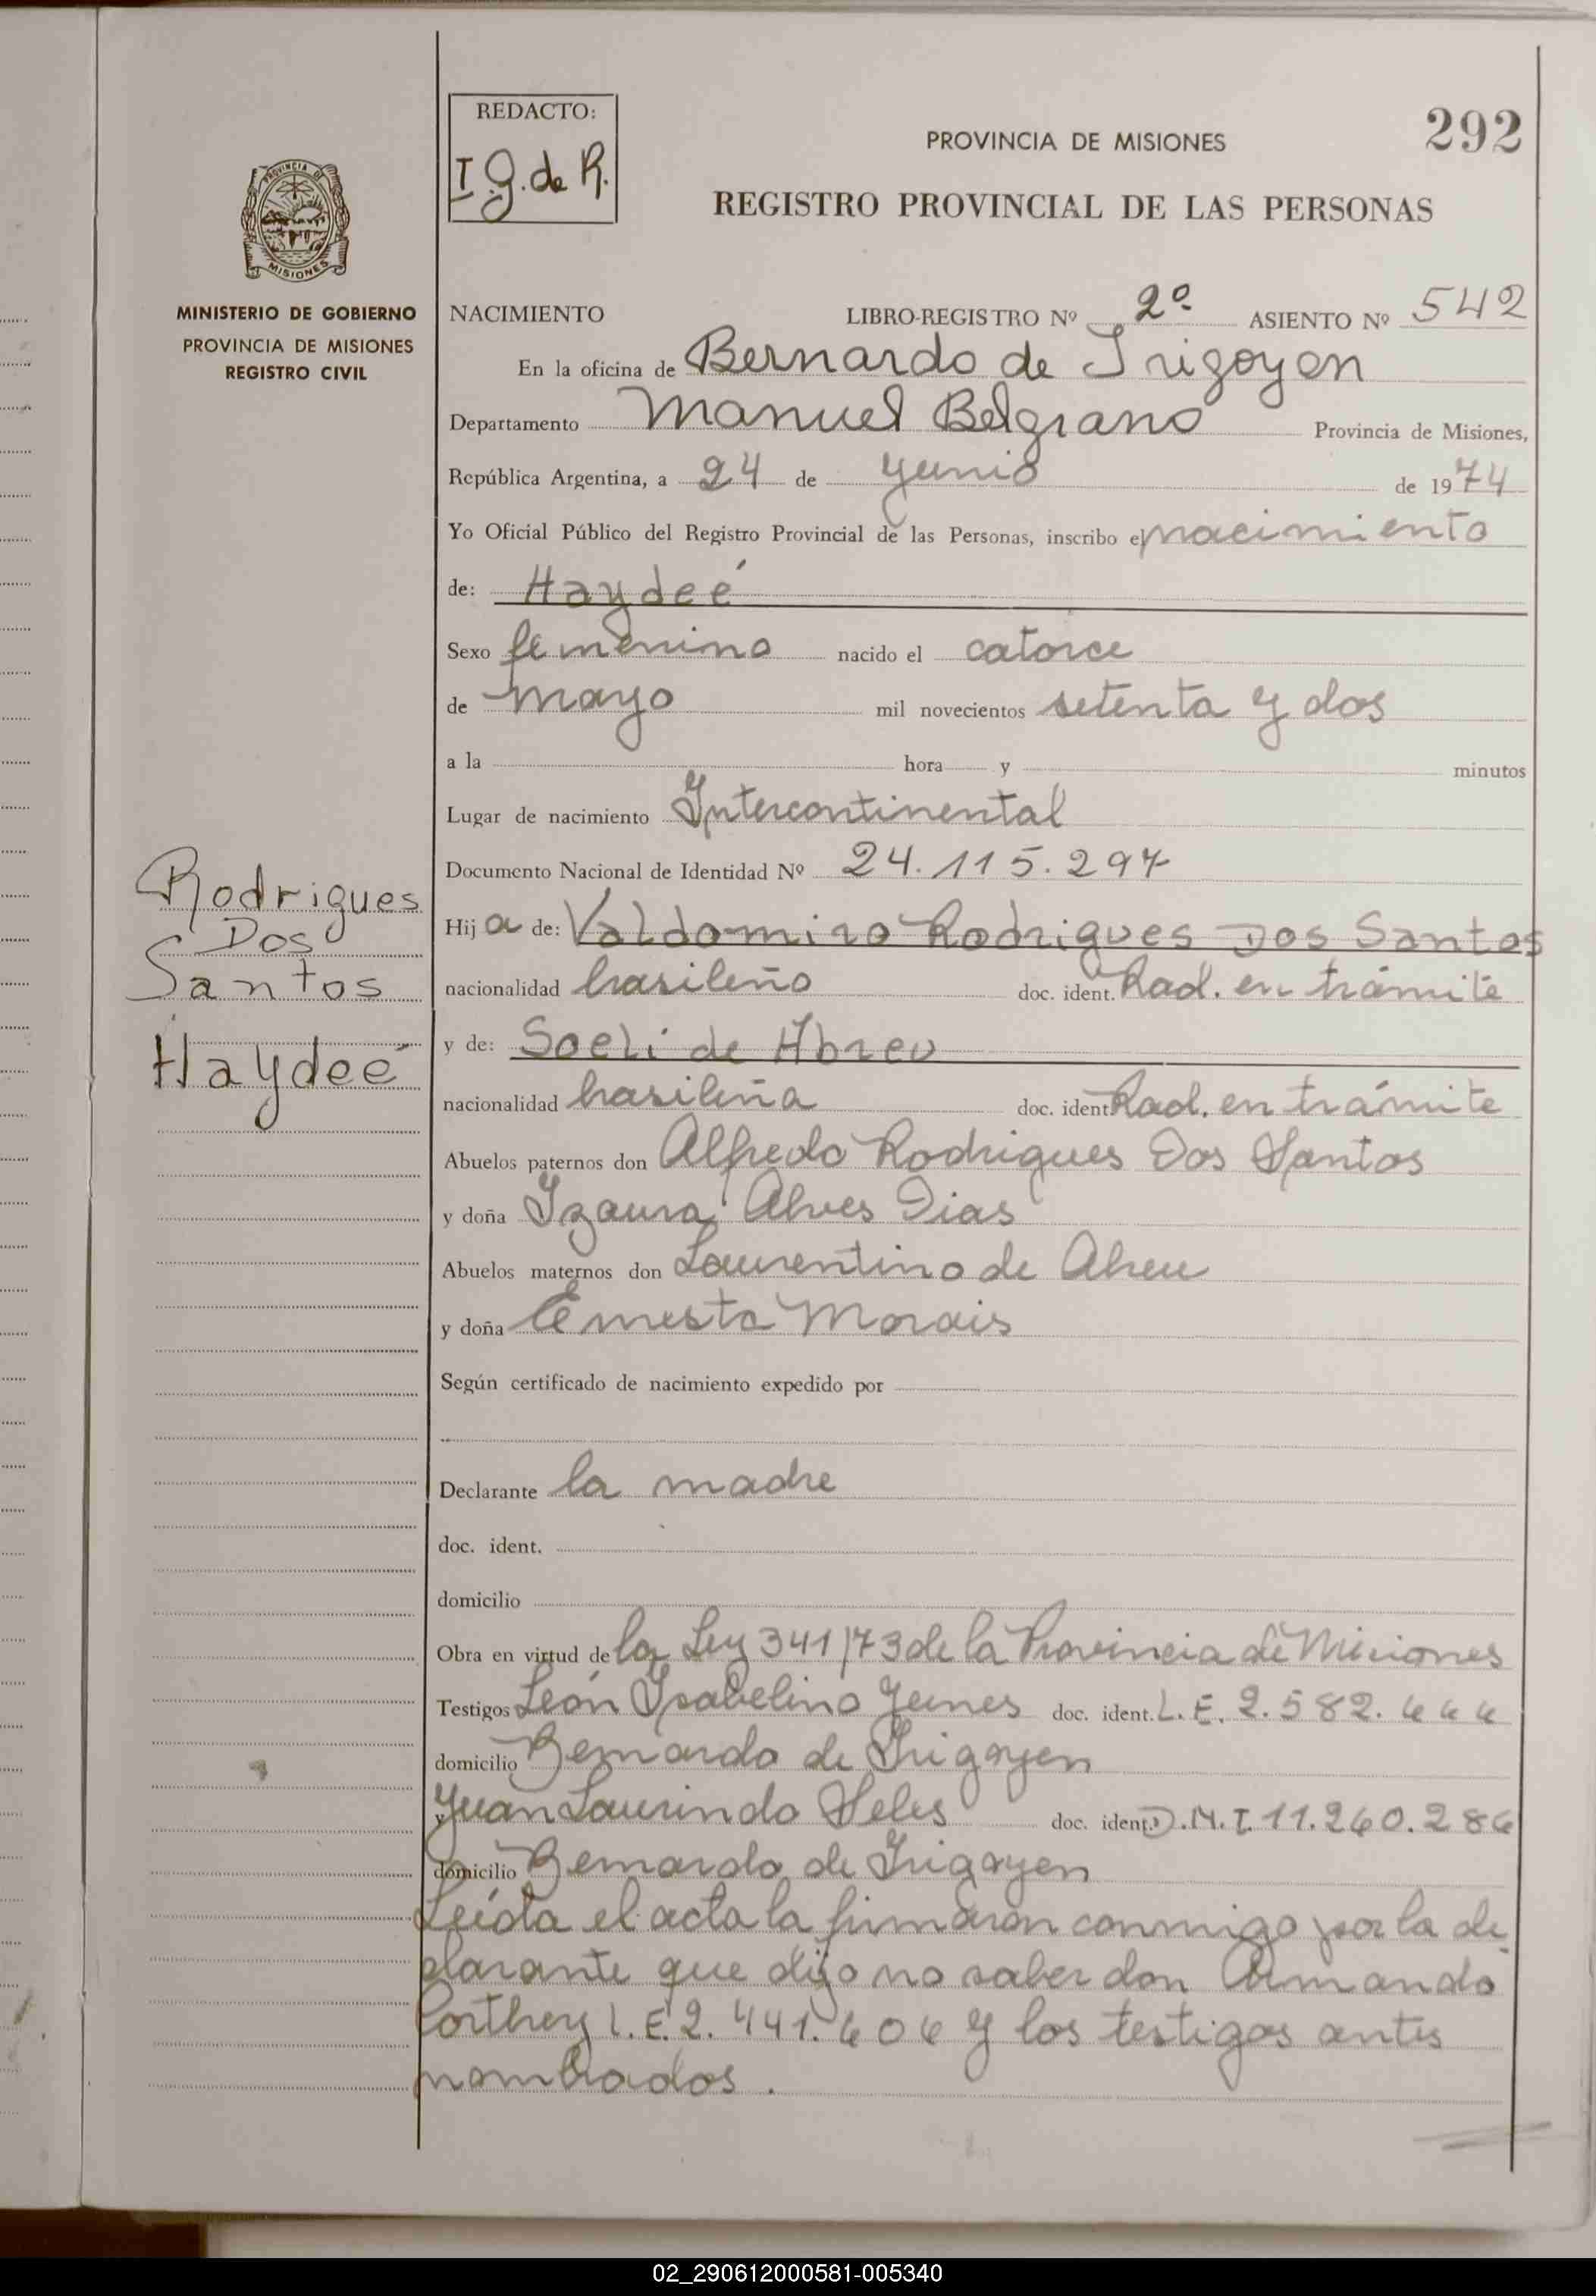 REDACTO:
I G. de R.
292
PROVINCIA DE MISIONES
REGISTRO PROVINCIAL DE LAS PERSONAS
PROVINCIA DE
MISIONES
MINISTERIO DE GOBIERNO
PROVINCIA DE MISIONES
REGISTRO CIVIL
NACIMIENTO LIBRO-REGISTRO Nº 2º ASIENTO Nº 542
En la oficina de Bernardo de Irigoyen
Departamento Manuel Belgrano Provincia de Misiones,
República Argentina, a 24 de junio de 1974
Yo Oficial Público del Registro Provincial de las Personas, inscribo el nacimiento
de: Haydeé
Sexo femenino nacido el catorce
de mayo mil novecientos setenta y dos
a la hora y minutos
Lugar de nacimiento Intercontinental
Documento Nacional de Identidad Nº 24.115.297
Rodrigues
Dos
Santos
Haydeé
Hija de: Valdomiro Rodrigues Dos Santos
nacionalidad brasileño doc. ident. Rad. en trámite
y de: Soeli de Abreu
nacionalidad brasileña doc. ident. Rad. en trámite
Abuelos paternos don Alfredo Rodrigues Dos Santos
y doña Izaura Alves Dias
Abuelos maternos don Laurentino de Abreu
y doña Ernesta Morais
Según certificado de nacimiento expedido por
Declarante la madre
doc. ident.
domicilio
Obra en virtud de la Ley 341/73 de la Provincia de Misiones
Testigos León Ysabelino doc. ident. L.E. 2.582.666
domicilio Bernardo de Irigoyen
y Juan Laurindo Seles doc. ident. D.N.I. 11.260.286
domicilio Bernardo de Irigoyen
Leída el acta la firmaron conmigo por la de
clarante que dijo no saber don Armando
L.E. 2.441.606 y los testigos antes
nombrados.
02_290612000581-005340